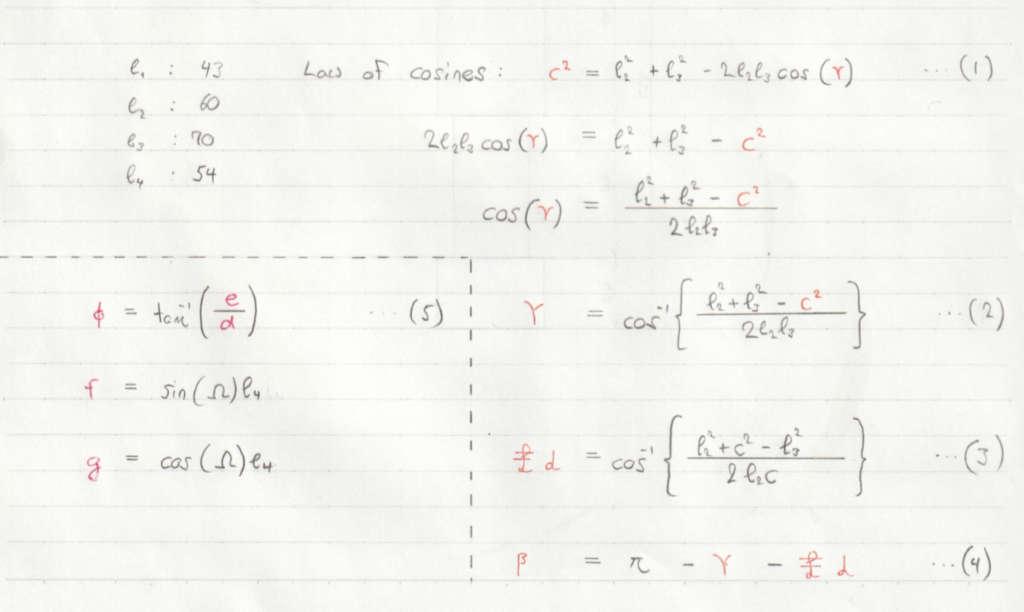 l₁ : 43 Law of cosines : c² = l₂² + l₃² - 2l₂l₃ cos(γ) ... (1)
l₂ : 60
l₃ : 70 2l₂l₃ cos(γ) = l₂² + l₃² - c²
l₄ : 54
cos(γ) = (l₂² + l₃² - c²) / (2l₂l₃)
φ = tan⁻¹(e/d) ... (5)
f = sin(Ω)l₄
g = cos(Ω)l₄
γ = cos⁻¹{(l₂² + l₃² - c²) / (2l₂l₃)} ... (2)
α = cos⁻¹{(l₂² + c² - l₃²) / (2l₂c)} ... (3)
β = π - γ - α ... (4)